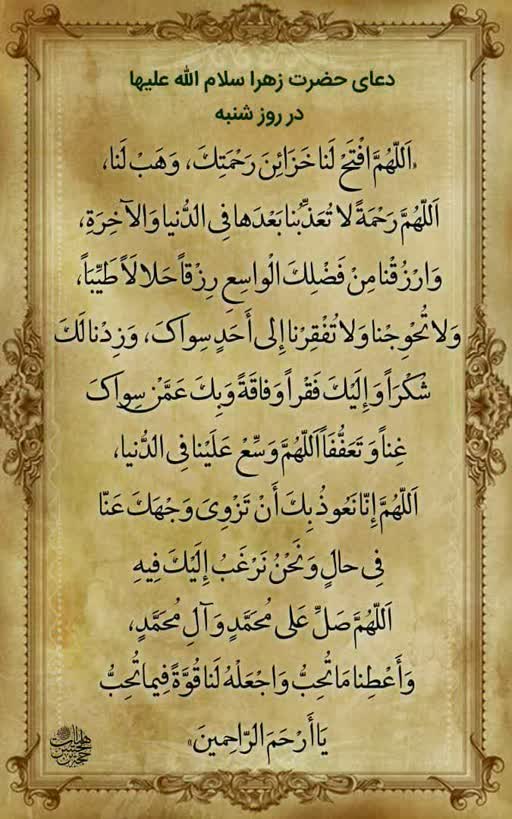 دعای حضرت زهرا سلام الله علیها
در روز شنبه
«اَللّهُمَّ افْتَحْ لَنا خَزائِنَ رَحْمَتِكَ، وَهَبْ لَنا،
اَللّهُمَّ رَحْمَةً لا تُعَذِّبُنا بَعْدَها فِی الدُّنیا وَالآخِرَةِ،
وَارْزُقْنا مِنْ فَضْلِكَ الْواسِعِ رِزْقاً حَلالاً طَیِّباً،
وَلا تُحْوِجْنا وَلا تُفْقِرْنا إِلی أَحَدٍ سِواكَ، وَزِدْنا لَكَ
شُكْرَاً وَإِلَیْكَ فَقْراً وَفاقَةً وَبِكَ عَمَّنْ سِواكَ
غِناً وَتَعَفُّفَاً اَللّهُمَّ وَسِّعْ عَلَیْنا فِی الدُّنیا،
اَللّهُمَّ إِنّا نَعُوذُ بِكَ أَنْ تَزْوِیَ وَجْهَكَ عَنّا
فِی حالٍ وَنَحْنُ نَرْغَبُ إِلَیْكَ فِیهِ
اَللّهُمَّ صَلِّ عَلی مُحَمَّدٍ وَآلِ مُحَمَّدٍ،
وَأَعْطِنا مَا تُحِبُّ وَاجْعَلْهُ لَنا قُوَّةً فِیما تُحِبُّ
یَا أَرْحَمَ الرّاحِمینَ»